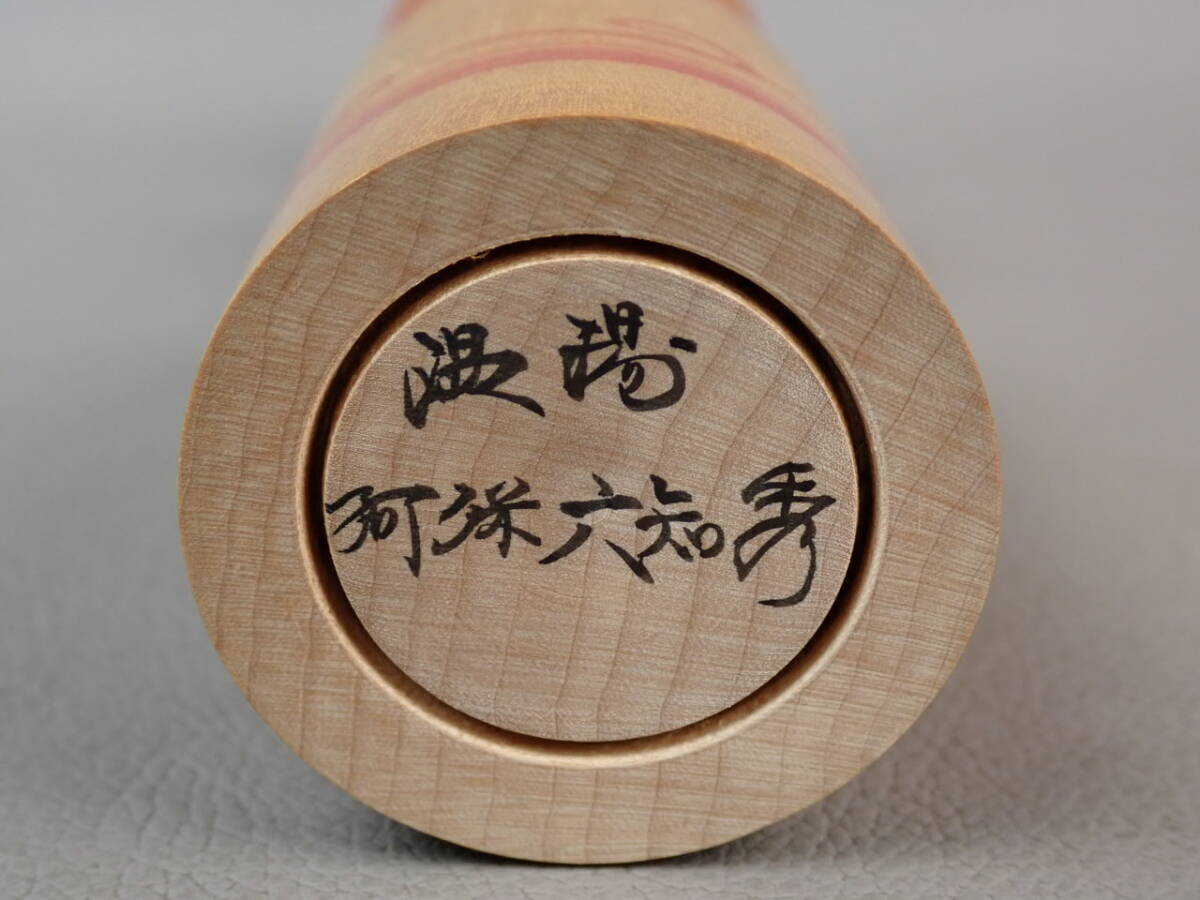 温湯
阿保六知秀